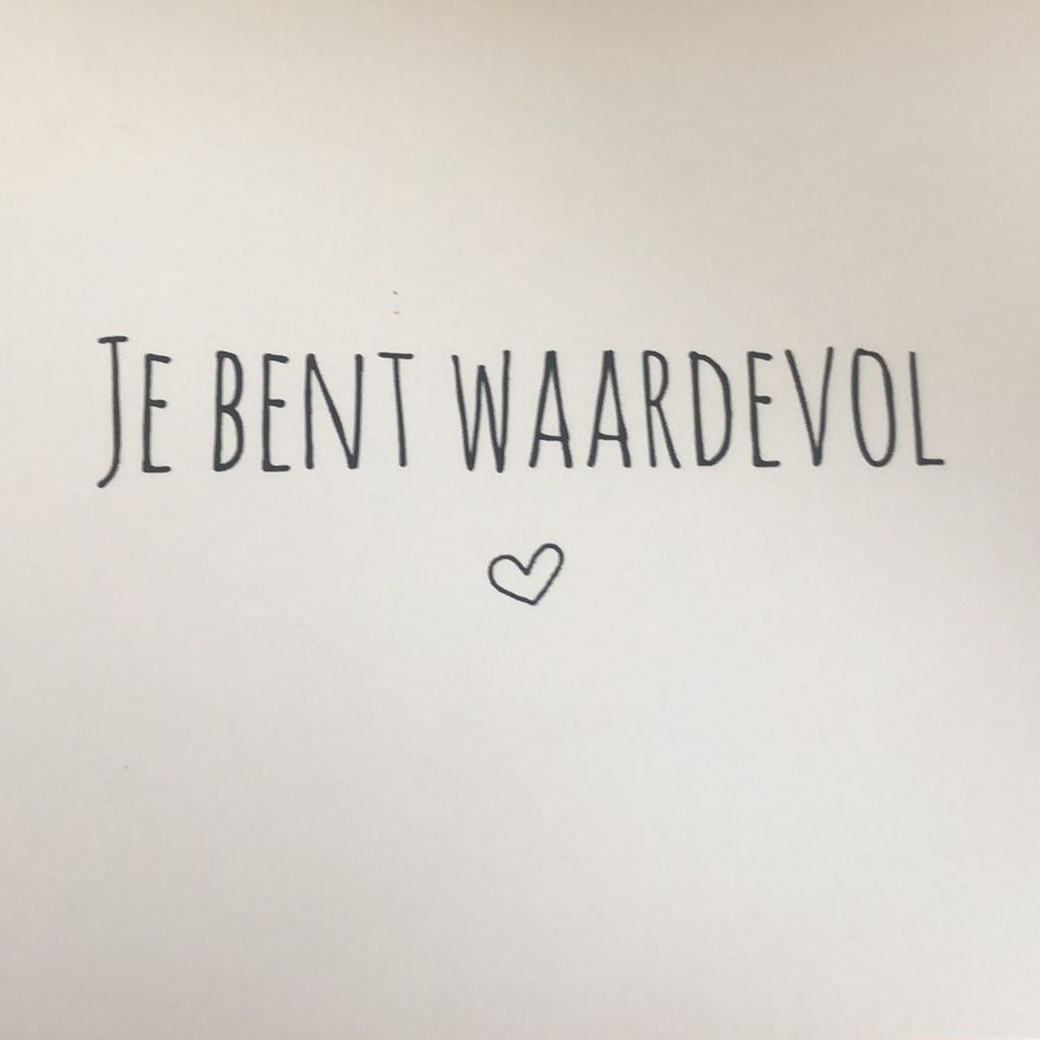 JE BENT WAARDEVOL